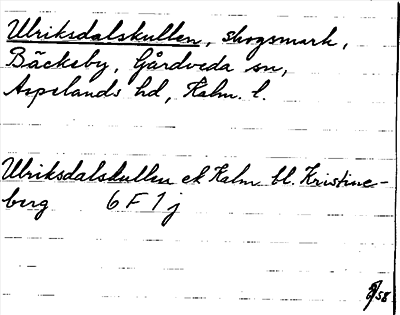 Ulriksdalskullen, skogsmark,
Bäckeby, Gårdveda sn,
Aspelands hd, Kalm. l.
Ulriksdalskullen ek Kalm bl. Kristine-
berg 6 F 1 j
/58